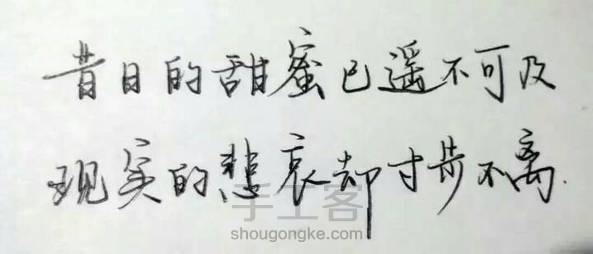 昔日的甜蜜已遥不可及
现实的悲哀却寸步不离.
手工客
shougongke.com